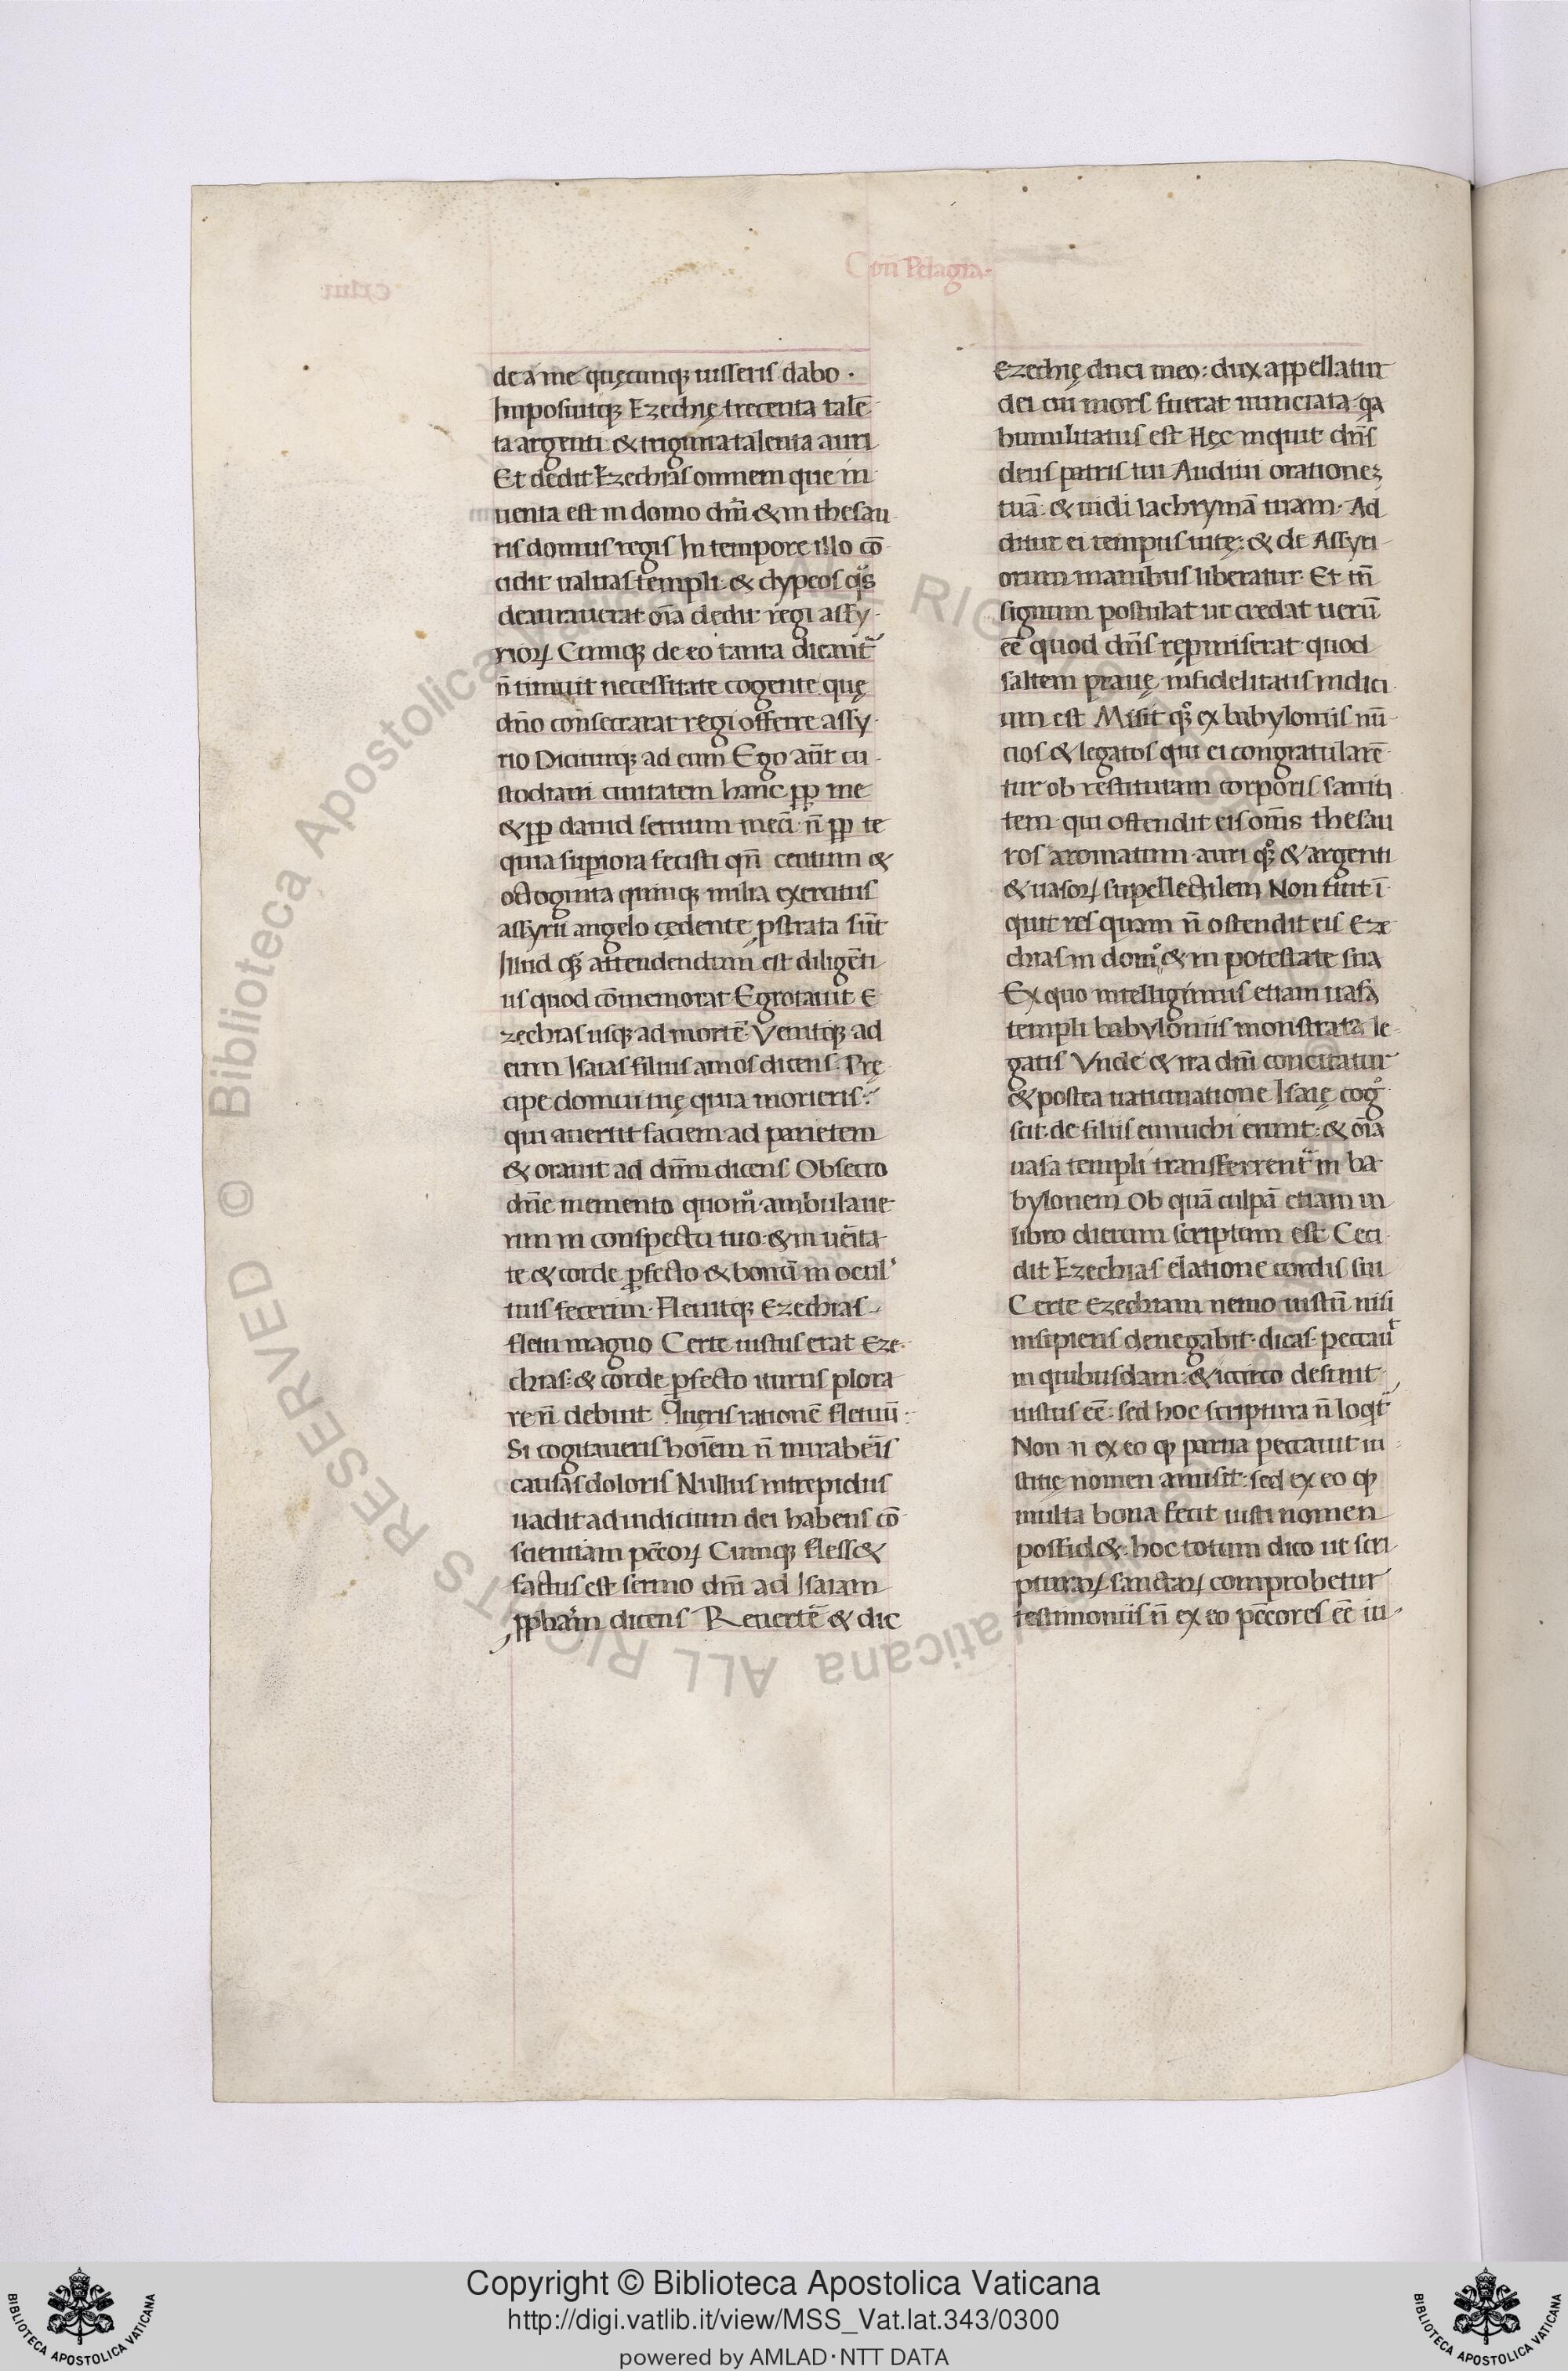 Con Pelagia·
de a me quęcunq iusseris dabo ·
Imposuitq Ezechię trecenta talē
ta argenti & triginta talenta auri
Et dedit Ezechias omnem que in
uenta est in domo dn̄i & in thesau
ris domus regis In tempore illo cō
cidit ualuas templi & clypeos qͣs
deaurauerat oīa dedit regi assy
rioꝝ Cumq de eo tanta dicant᷑
n̄ timuit necessitate cogente quę
dn̄o consecrarat regi offerre assy
rio Diciturq ad eum Ego aūt cu
stodiam ciuitatem hanc ꝓp me
& ꝓp dauid seruum meū n̄ ꝓp te
quia supiora fecisti qn̄ centum &
octoginta quinq milia exercitus
assyrii angelo cędente ꝓstrata sūt
Illud qͦꝫ attendendum est diligēti
us quod cōmemorat Egrotauit E
zechias usq ad mortē Venitq ad
eum Isaias filius amos dicens Prę
cipe domui tuę quia morieris
qui auertit faciem ad parietem
& orauit ad dn̄m dicens Obsecro
dn̄e memento quom̊ ambulaue
rim in conspectu tuo & in ueīta
te & corde ꝑfecto & bonū in ocul'
tuis fecerim Fleuitq Ezechias
fletu magno Certe iustus erat Eze
chias & corde ꝑfecto iturus plora
re n̄ debuit Quęris rationē fletuū
Si cogitaueris hoīem n̄ miraberīs
causas doloris Nullus intrepidus
uadit ad iudicium dei habens cō
scientiam pc̄coꝝ Cumq fless&
factus est sermo dn̄i ad Isaiam
ꝓpham dicens Reuerte᷑ & dic
Ezechię duci meo: dux appellatur
dei cū mors fuerat nunciata qa
humiliatus est Hęc inquit dn̄s
deus patris tui Audiui orationeꝫ
tuā & uidi lachrymā tuam Ad
ditur ei tempus uitę: & de Assyri
orum manibus liberatur Et tn̄
signum postulat ut credat uerū
eē quod dn̄s repmiserat quod
saltem prauę infidelitatis indici
um est Misit qͦꝫ ex babyloniis nū
cios & legatos qui ei congratularē
tur ob restitutam corporis saniti
tem qui ostendit eis om̄s thesau
ros aromatum auri qͦꝫ & argenti
& uasoꝝ supellectilem Non fuit ī
quit res quam n̄ ostendit eis Eze
chias in dom̊ & in potestate sua
Ex quo intelligimus etiam uasa
templi babyloniis monstrata le
gatis Vnde & ira dn̄i concitatur
& postea uaticinatione Isaię cog̊
scit de filiis eunuchi erunt: & oīa
uasa templi transferrent᷑ in ba
bylonem Ob quā culpā etiam in
libro dierum scriptum est Ceci
dit Ezechias elatione cordis sui
Certe Ezechiam nemo iustū nisi
insipiens denegabit dicas peccau᷑
in quibusdam: & iccirco desinit
iustus eē: sed hoc scriptura n̄ loqt᷑
Non n ex eo ꝙ parua peccauit iu
stitię nomen amisit: sed ex eo ꝙ
multa bona fecit iusti nomen
possid& hoc totum dico ut scri
pturaꝝ sanctaꝝ comprobetur
testimoniis n̄ ex eo pc̄cores eē iu
Copyright © Biblioteca Apostolica Vaticana
http://digi.vatlib.it/view/MSS_Vat.lat.343/0300
powered by AMLAD·NTT DATA
© Biblioteca Apostolica Vaticana ALL RIGHTS RESERVED
BIBLIOTECA APOSTOLICA VATICANA
BIBLIOTECA APOSTOLICA VATICANA